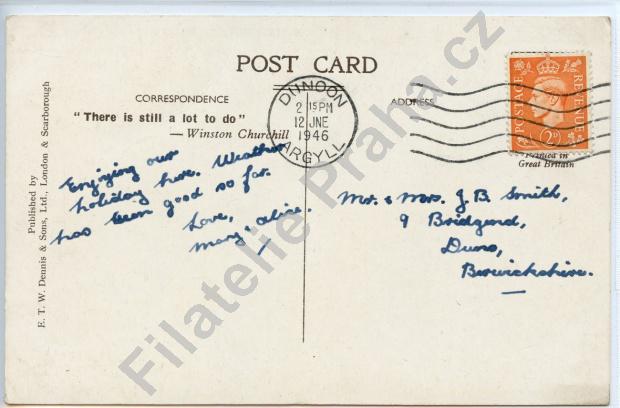 POST CARD
CORRESPONDENCE
"There is still a lot to do"
— Winston Churchill
Enjoying our
holiday here. Weather
has been good so far.
Love,
Mary & Aline.
DUNOON
2 15 PM
12 JNE
1946
ARGYLL
ADDRESS
POSTAGE
REVENUE
2D
Printed in
Great Britain
Mr. & Mrs. J. B. Smith,
9 Bridgend,
Duns,
Berwickshire.
Published by
E. T. W. Dennis & Sons, Ltd., London & Scarborough
Filatelie Praha.cz